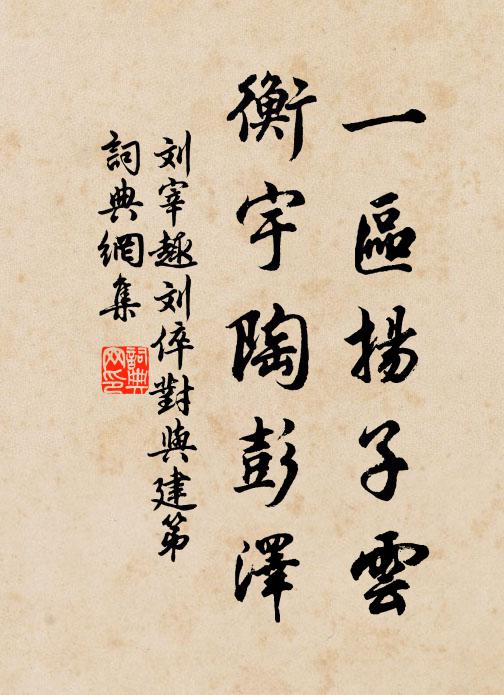 一區揚子雲
衡宇陶彭澤
刘宰趣刘倅對與建第
詞典網集
詞典網印